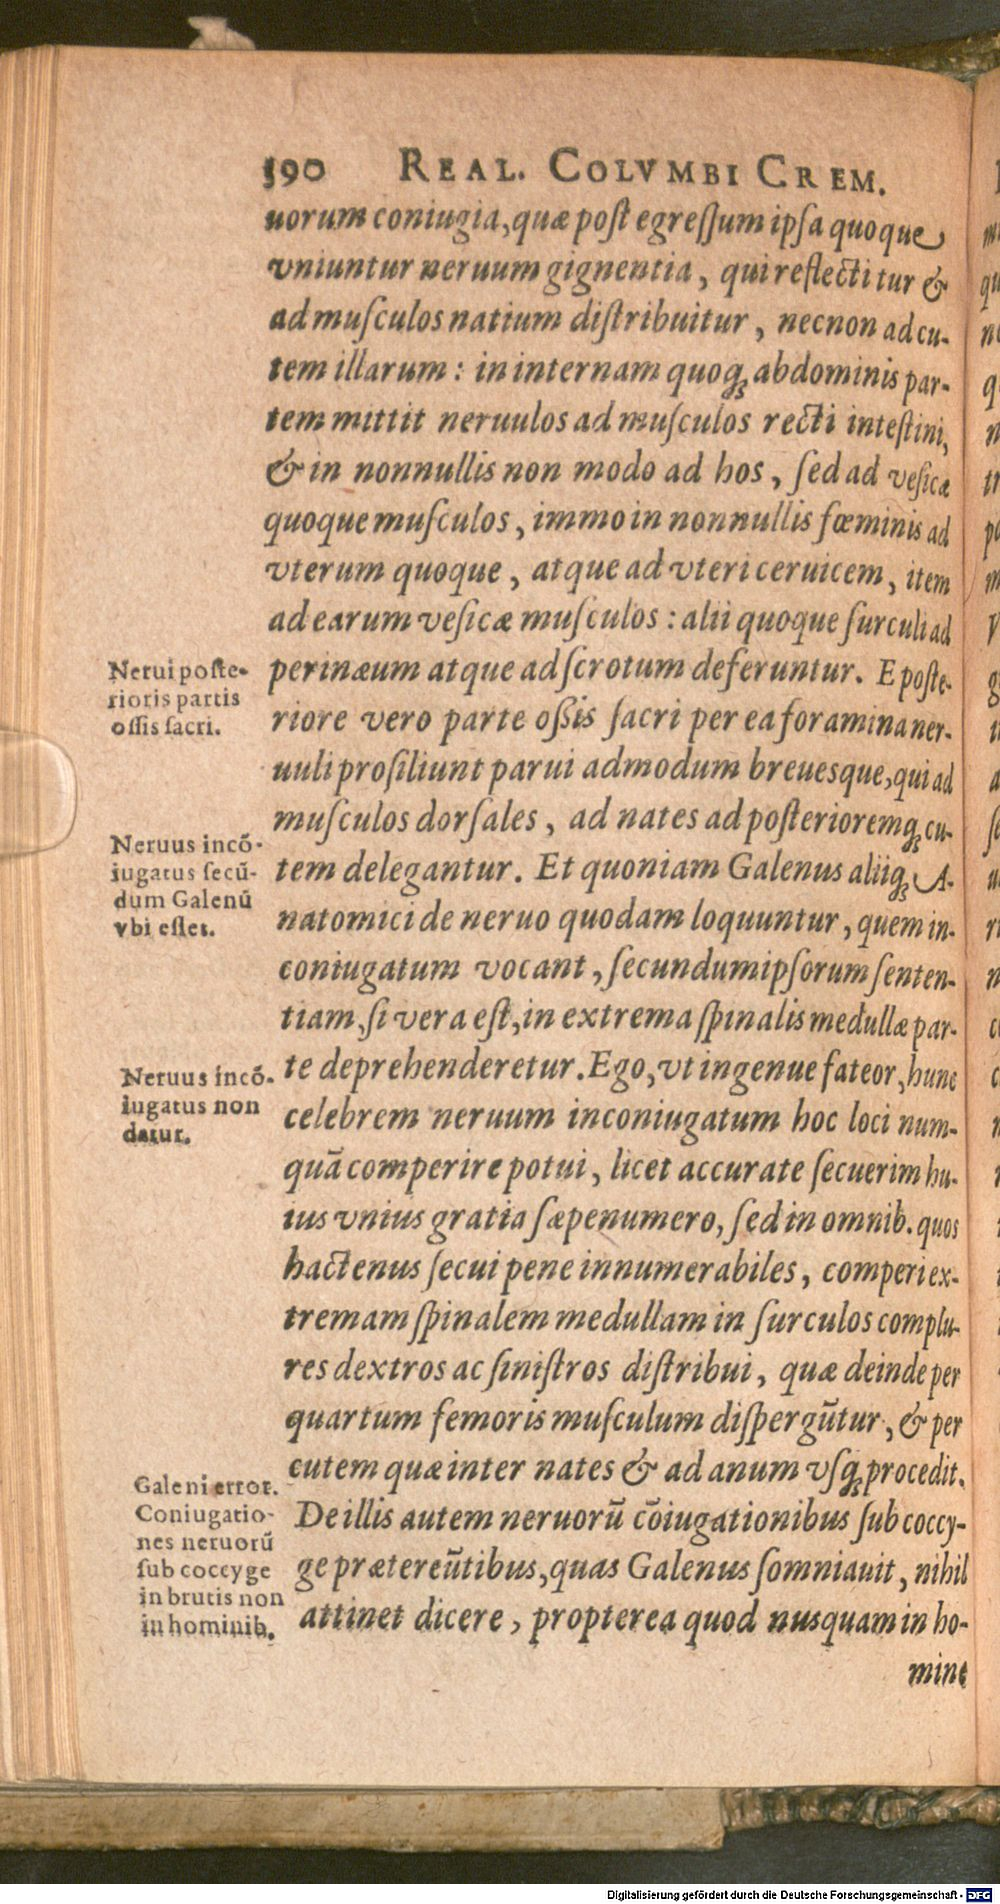 390 REAL. COLVMBI CREM.
uorum coniugia, quæ post egressum ipsa quoque
vniuntur neruum gignentia, qui reflectitur &
ad musculos natium distribuitur, necnon ad cu-
tem illarum: in internam quoqȝ abdominis par-
tem mittit neruulos ad musculos recti intestini,
& in nonnullis non modo ad hos, sed ad vesicæ
quoque musculos, immo in nonnullis fœminis ad
vterum quoque, atque ad vteri ceruicem, item
ad earum vesicæ musculos: alii quoque surculi ad
perinæum atque ad scrotum deferuntur. E poste-
riore vero parte ossis sacri per ea foramina ner-
uuli prosiliunt parui admodum breuesque, qui ad
musculos dorsales, ad nates ad posterioremqȝ cu-
tem delegantur. Et quoniam Galenus aliiqȝ A-
natomici de neruo quodam loquuntur, quem in-
coniugatum vocant, secundum ipsorum senten-
tiam, si vera est, in extrema spinalis medullæ par-
te deprehenderetur. Ego, vt ingenue fateor, hunc
celebrem neruum inconiugatum hoc loci num-
quā comperire potui, licet accurate secuerim hu-
ius vnius gratia sæpenumero, sed in omnib. quos
hactenus secui pene innumerabiles, comperi ex-
tremam spinalem medullam in surculos complu-
res dextros ac sinistros distribui, quæ deinde per
quartum femoris musculum dispergūtur, & per
cutem quæ inter nates & ad anum vsqȝ procedit.
De illis autem neruorū cōiugationibus sub coccy-
ge prætereūtibus, quas Galenus somniauit, nihil
attinet dicere, propterea quod nusquam in ho-
mine
Nerui poste-
rioris partis
ossis sacri.
Neruus incō-
iugatus secū-
dum Galenū
vbi esset.
Neruus incō-
iugatus non
datur.
Galeni error.
Coniugatio-
nes neruorū
sub coccyge
in brutis non
in hominib.
Digitalisierung gefördert durch die Deutsche Forschungsgemeinschaft - DFG